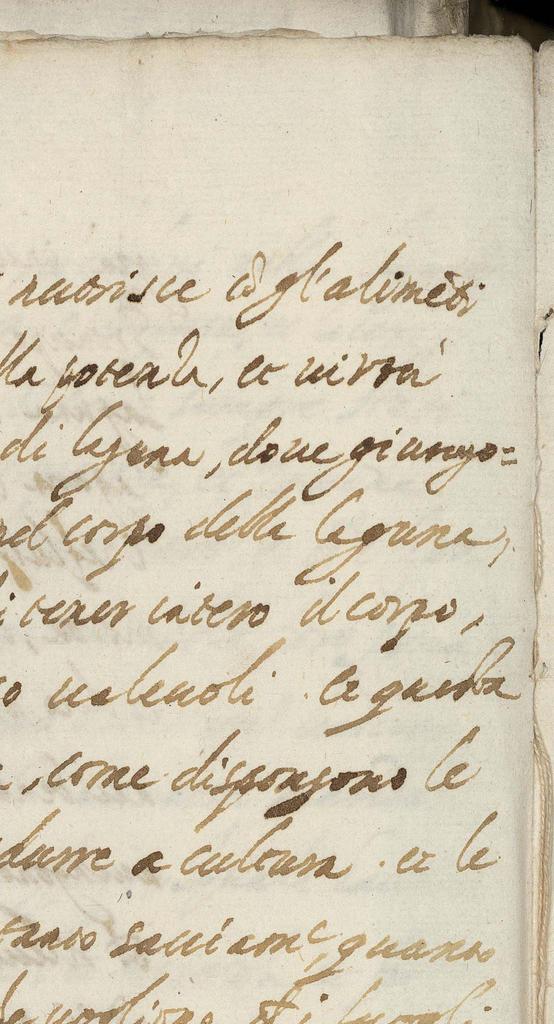 nutrisce cõ gl'alimẽti
lla potenza, et uirtù
di laguna, doue giungo=
nel corpo della laguna,
i tener intero il corpo,
so ualeuoli. et questa
, come dispongono le
durre a cultura. et le
tanto quanto